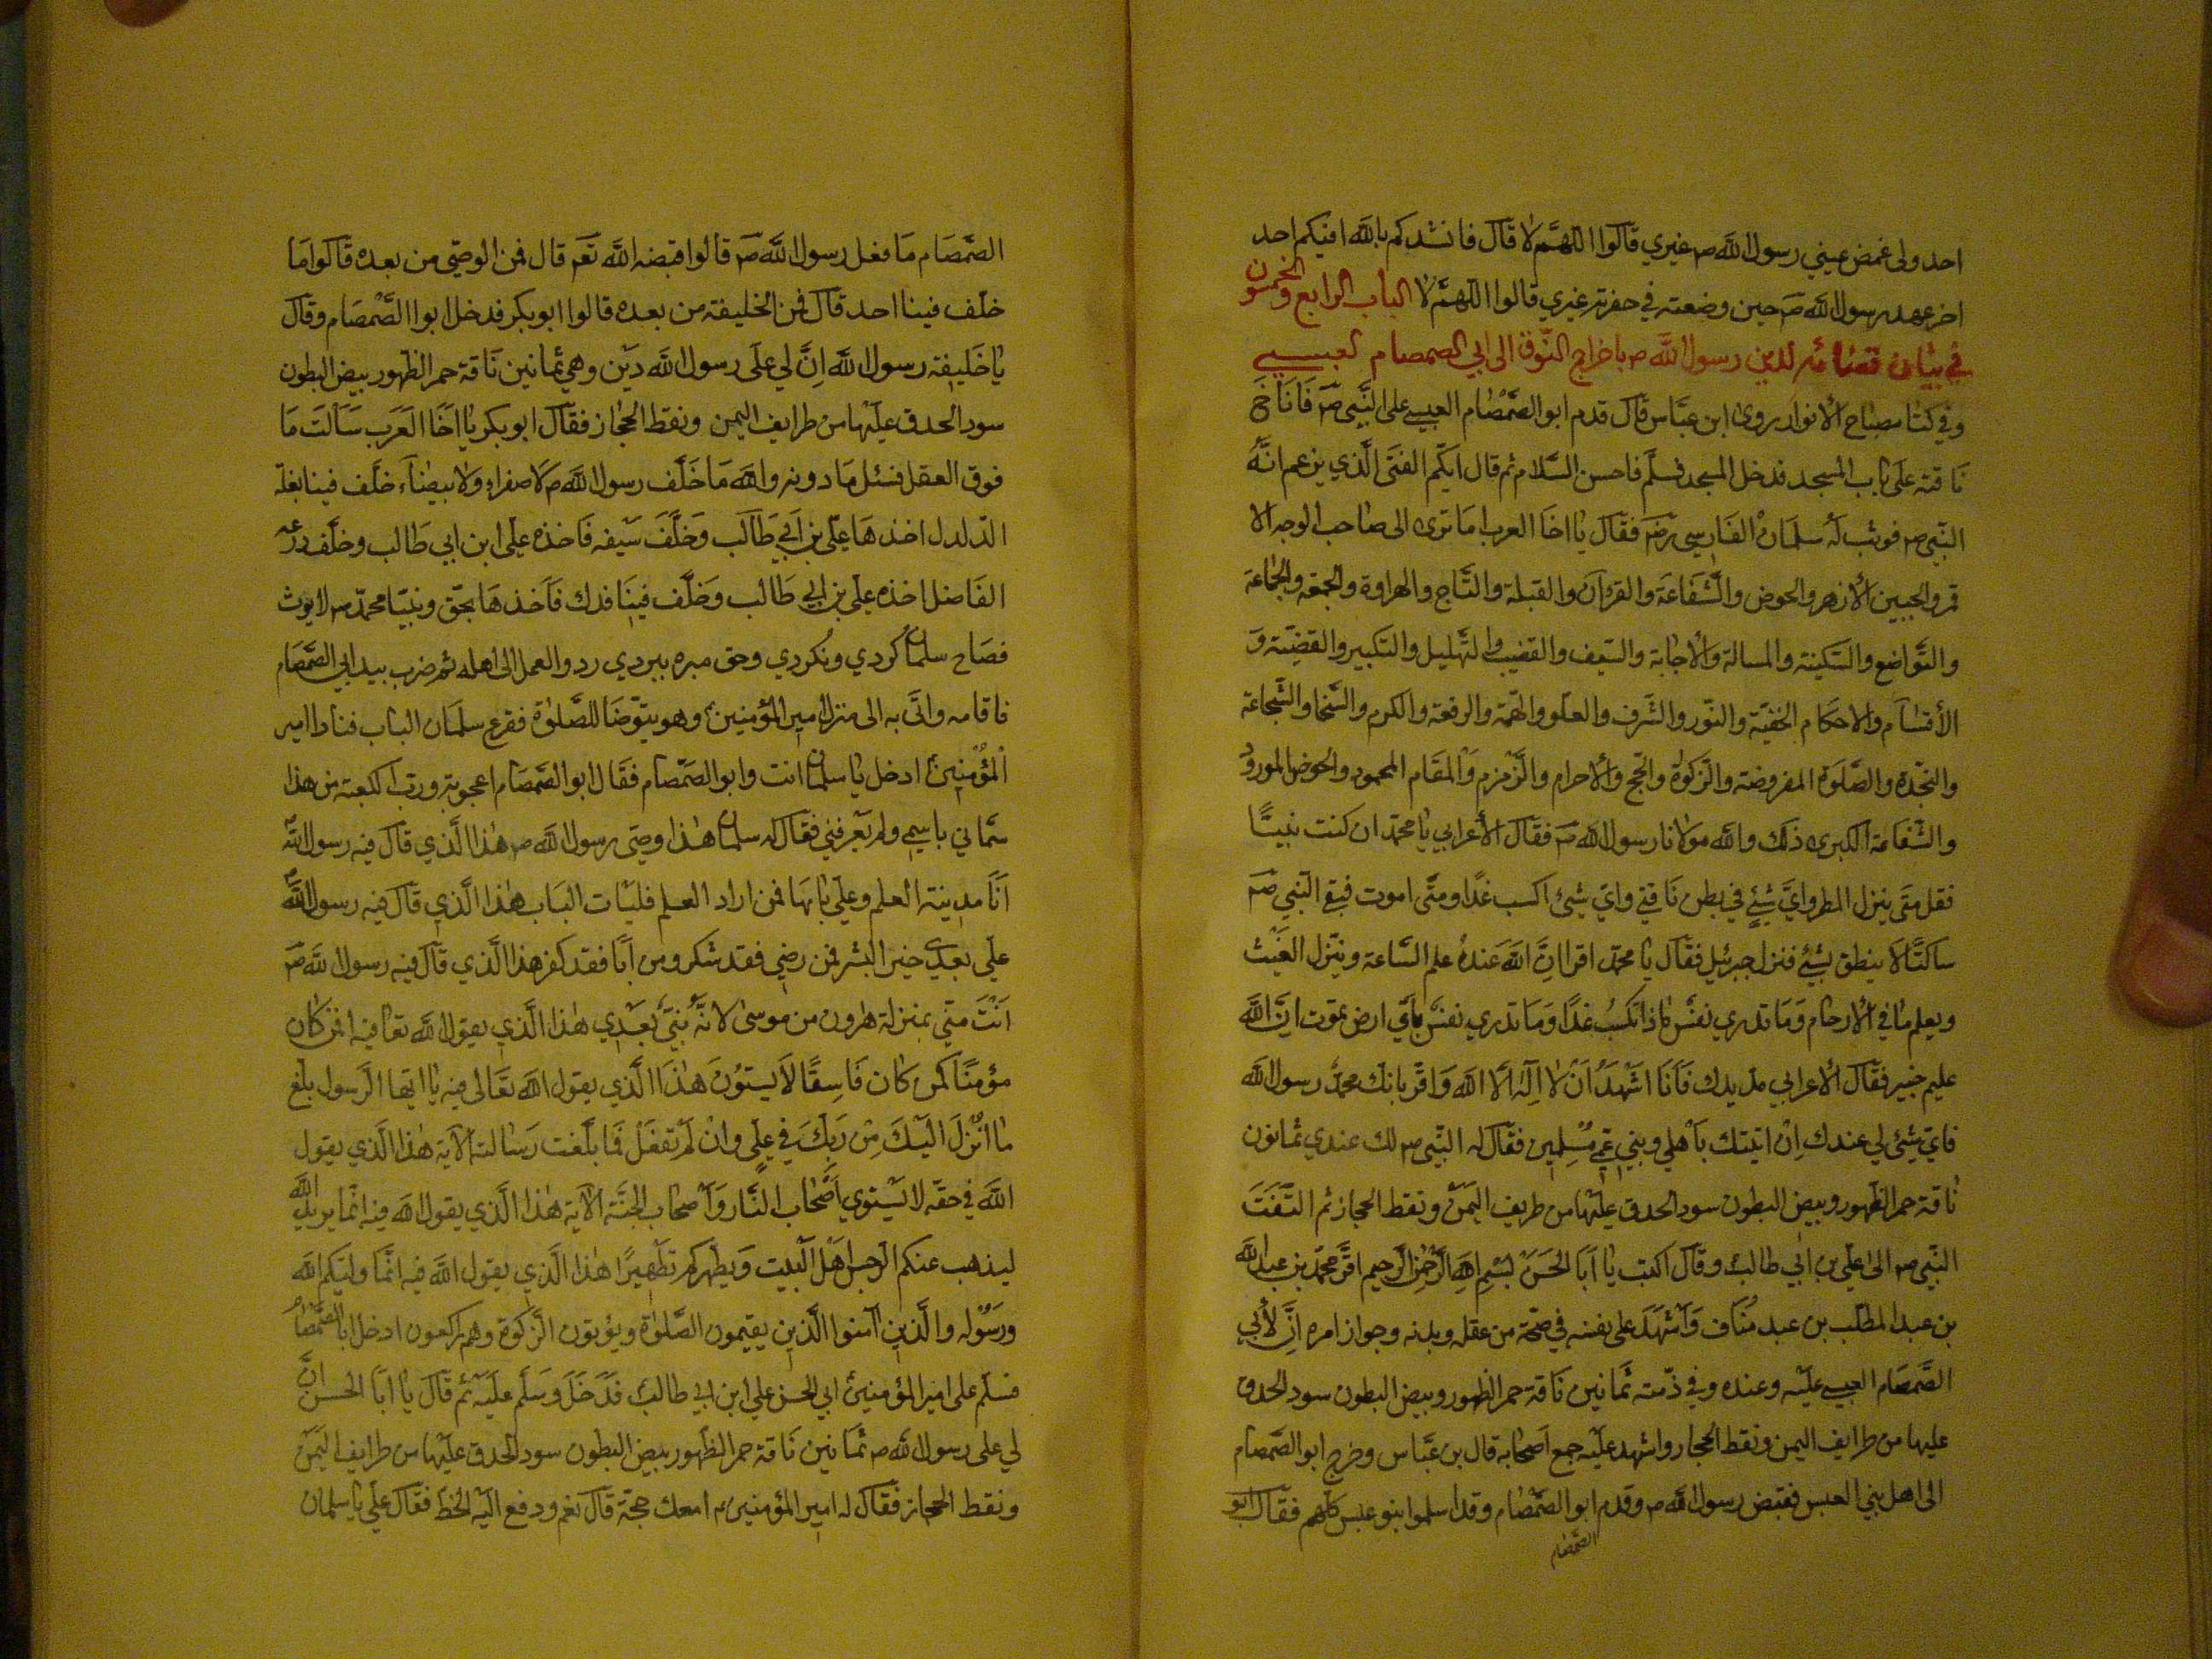 احد ولى غمض عيني رسول الله ص غيري قالوا اللهم لا قال فانشدكم بالله افيكم احد
اخر عهد برسول الله صم حين وضعته في حفرته غيري قالوا اللهم لا الباب الرابع والخمسون
في بيان قضائه لدين رسول الله ص باخراج النوق الى ابي الصمصام العبسي
وفي كتاب مصباح الأنوار روى ابن عباس قال قدم ابو الصمصام العبسي على النبي صم فاناخ
ناقته على باب المسجد فدخل المسجد فسلم فاحسن السلام ثم قال ايكم الفتى الذي يزعم انه
النبي ص فوثب له سلمان الفارسي رض فقال يا اخا العرب اما ترى الى صاحب الوجه الا
قمر والجبين الأزهر والحوض والشفاعة والقرآن والقبلة والتاج والهراوة والجمعة والجماعة
والتواضع والسكينة والمسالة والأجابة والسيف والقضيب والتهليل والتكبير والقضية و
الأقسام والاحكام الخفية والنور والشرف والعلو والهمة والرفعة والكرم والسخا والشجاعة
والنجدة والصلوة المفروضة والزكوة والحج والأحرام والزمزم والمقام المحمود والحوض المورود
والشفاعة الكبرى ذلك والله مولانا رسول الله صم فقال الأعرابي يا محمد ان كنت نبيا
فقل متى ينزل المطر واي شيئ في بطن ناقتي واي شيئ اكسب غدا ومتى اموت فبقي النبي صم
ساكتا لا ينطق بشيئ فنزل جبرئيل فقال يا محمد اقرا ان الله عنده علم الساعة وينزل الغيث
ويعلم ما في الأرحام وما تدري نفس ماذا تكسب غدا وما تدري نفس باي ارض تموت ان الله
عليم خبير فقال الأعرابي مد يدك فانا اشهد ان لا اله الا الله واقر بانك محمد رسول الله
فاي شيئ لي عندك ان اتيتك باهلي وبني عمي مسلمين فقال له النبي ص لك عندي ثمانون
ناقة حمر الظهور وبيض البطون سود الحدق عليها من طريف اليمن ونقط الحجاز ثم التفت
النبي ص الى علي بن ابي طالب وقال اكتب يا ابا الحسن بسم الله الرحمن الرحيم اقر محمد بن عبد الله
بن عبد المطلب بن عبد مناف واشهد على نفسه في صحة من عقله وبدنه وجواز امره ان لأبي
الصمصام العبسي عليه وعنده وفي ذمته ثمانين ناقة حمر الظهور وبيض البطون سود الحدق
عليها من طرايف اليمن ونقط الحجاز واشهد عليه جمع اصحابه قال بن عباس وخرج ابو الصمصام
الى اهل بني العبس فقبض رسول الله ص وقدم ابو الصمصام وقد اسلموا بنو عبس كلهم فقال ابو
الصمصام
الصمصام ما فعل رسول الله صم قالوا قبضه الله تعم قال فمن الوصي من بعده قالوا ما
خلف فينا احد قال فمن الخليفة من بعده قالوا ابو بكر فدخل ابوا الصمصام وقال
يا خليفة رسول الله ان لي على رسول الله دين وهي ثمانين ناقة حمر الظهور بيض البطون
سود الحدق عليها من طرايف اليمن ونقط الحجاز فقال ابو بكر يا اخا العرب سالت ما
فوق العقل فسئل ما دونه والله ما خلف رسول الله ص لا صفراء ولا بيضاء خلف فينا بغلة
الدلدل اخذها علي بن ابي طالب وخلف سيفه فاخذه علي ابن ابي طالب وخلف درعه
الفاضل اخذه علي بن ابي طالب وخلف فينا فدك فاخذها بحق ونبينا محمد ص لا يورث
فصاح سلمان كردي ونكردي وحق ميره ببردي ردوا العمل الى اهله ثم ضرب بيد ابي الصمصام
فاقامه واتى به الى منزل امير المؤمنين وهو يتوضا للصلوة فقرع سلمان الباب فنادا امير
المؤمنين ادخل يا سلمان انت وابو الصمصام فقال ابو الصمصام اعجوبة ورب الكعبة من هذا
سماني باسمي ولم يعرفني فقال له سلمان هذا وصي رسول الله ص هذا الذي قال فيه رسول الله
انا مدينة العلم وعلي بابها فمن اراد العلم فليات الباب هذا الذي قال فيه رسول الله ص
علي بعدي خير البشر فمن رضي فقد شكر ومن ابا فقد كفر هذا الذي قال فيه رسول الله صم
انت مني بمنزلة هارون من موسى الا انه نبي بعدي هذا الذي يقول الله تعا فيه افمن كان
مؤمنا كمن كان فاسقا لا يستون هذا الذي يقول الله تعالى فيه يا ايها الرسول بلغ
ما انزل اليك من ربك في علي وان لم تفعل فما بلغت رسالته الآية هذا الذي يقول
الله في حقه لا يستوي اصحاب النار واصحاب الجنة الآية هذا الذي يقول الله فيه انما يريد الله
ليذهب عنكم الرجس اهل البيت ويطهركم تطهيرا هذا الذي يقول الله فيه انما وليكم الله
ورسوله والذين آمنوا الذين يقيمون الصلوة ويؤتون الزكوة وهم راكعون ادخل ابا الصمصام
فسلم على امير المؤمنين ابي الحسن علي ابن ابي طالب فدخل وسلم عليه ثم قال يا ابا الحسن ان
لي على رسول الله ص ثمانين ناقة حمر الظهور بيض البطون سود الحدق عليها من طرايف اليمن
ونقط الحجاز فقال له امير المؤمنين امعك حجة قال نعم ودفع اليه الخط فقال علي يا سلمان